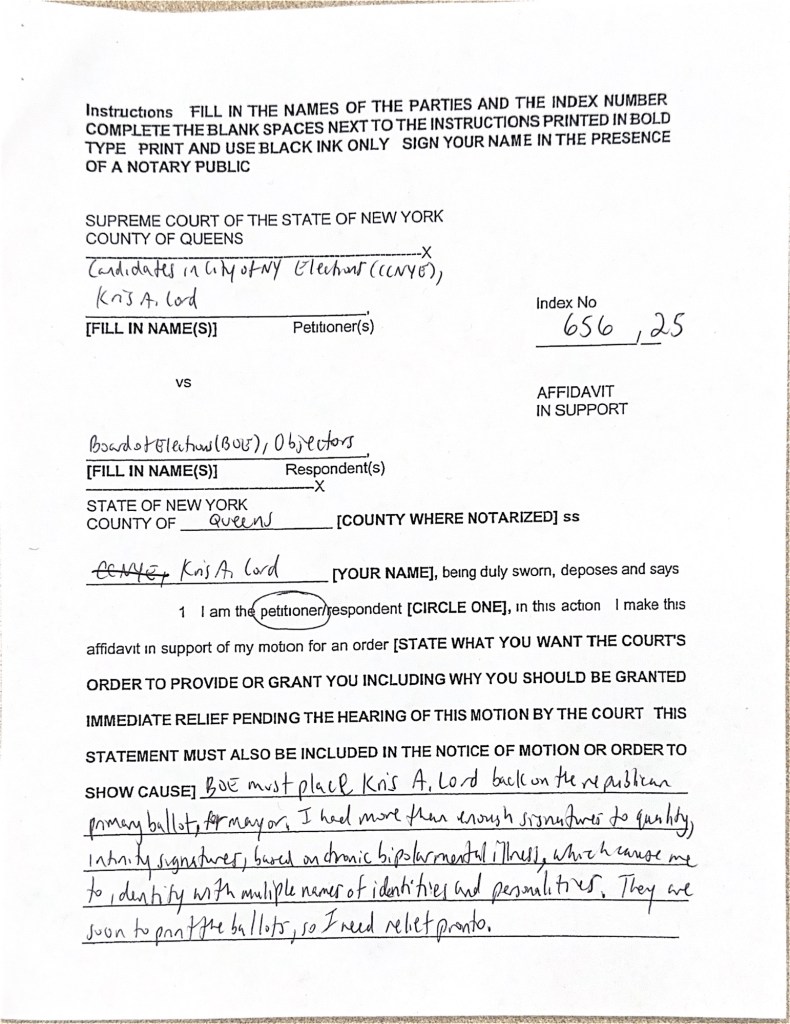 Instructions FILL IN THE NAMES OF THE PARTIES AND THE INDEX NUMBER
COMPLETE THE BLANK SPACES NEXT TO THE INSTRUCTIONS PRINTED IN BOLD
TYPE PRINT AND USE BLACK INK ONLY SIGN YOUR NAME IN THE PRESENCE
OF A NOTARY PUBLIC
SUPREME COURT OF THE STATE OF NEW YORK
COUNTY OF QUEENS
X
Candidates in City of NY Elections (CCNYE),
Kris A. Lord
[FILL IN NAME(S)] Petitioner(s)
Index No
656, 25
vs
AFFIDAVIT
IN SUPPORT
Board of Elections (BOE), Objectors
[FILL IN NAME(S)] Respondent(s)
X
STATE OF NEW YORK
COUNTY OF Queens [COUNTY WHERE NOTARIZED] ss
CCNYE, Kris A. Lord [YOUR NAME], being duly sworn, deposes and says
1 I am the petitioner/respondent [CIRCLE ONE], in this action I make this
affidavit in support of my motion for an order [STATE WHAT YOU WANT THE COURT'S
ORDER TO PROVIDE OR GRANT YOU INCLUDING WHY YOU SHOULD BE GRANTED
IMMEDIATE RELIEF PENDING THE HEARING OF THIS MOTION BY THE COURT THIS
STATEMENT MUST ALSO BE INCLUDED IN THE NOTICE OF MOTION OR ORDER TO
SHOW CAUSE] BOE must place Kris A. Lord back on the republican
primary ballot, for mayor. I had more than enough signatures to qualify,
infinity signatures, based on chronic bipolar mental illness, which cause me
to identify with muliple names of identities and personalities. They are
soon to print the ballots, so I need relief pronto.